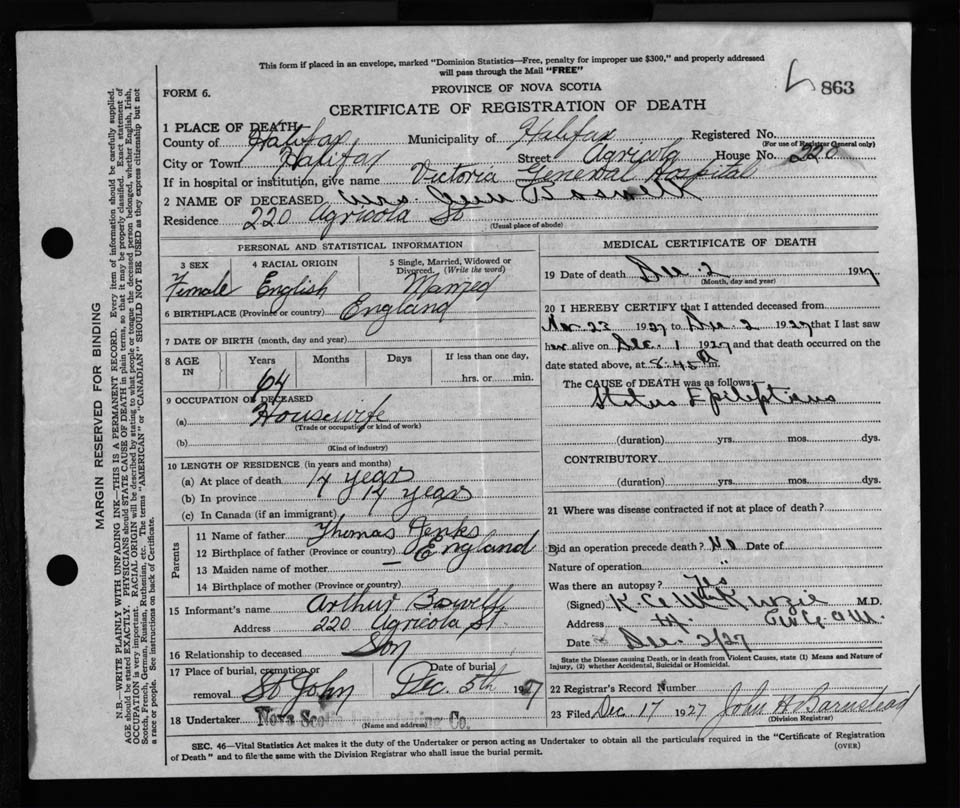 This form if placed in an envelope, marked "Dominion Statistics—Free, penalty for improper use $300," and properly addressed
will pass through the Mail "FREE"
863
FORM 6.
PROVINCE OF NOVA SCOTIA
CERTIFICATE OF REGISTRATION OF DEATH
1 PLACE OF DEATH
County of Halifax Municipality of Halifax Registered No.
(For use of Registrar General only)
City or Town Halifax Street Agricola House No. 220
If in hospital or institution, give name Victoria General Hospital
2 NAME OF DECEASED Mrs. Boswell
Residence 220 Agricola St
(Usual place of abode)
PERSONAL AND STATISTICAL INFORMATION
3 SEX 4 RACIAL ORIGIN 5 Single, Married, Widowed or
Divorced. (Write the word)
Female English Married
6 BIRTHPLACE (Province or country) England
7 DATE OF BIRTH (month, day and year)
8 AGE IN Years Months Days If less than one day,
64 hrs. or min.
9 OCCUPATION OF DECEASED
(a) Housewife
(Trade or occupation or kind of work)
(b)
(Kind of industry)
10 LENGTH OF RESIDENCE (in years and months)
(a) At place of death 14 years
(b) In province 14 years
(c) In Canada (if an immigrant)
Parents
11 Name of father Thomas Jenks
12 Birthplace of father (Province or country) England
13 Maiden name of mother
14 Birthplace of mother (Province or country)
15 Informant's name Arthur Boswell
Address 220 Agricola St.
16 Relationship to deceased Son
17 Place of burial, cremation or removal St John Date of burial Dec. 5th 1927
18 Undertaker Nova Scotia Undertaking Co.
(Name and address)
MEDICAL CERTIFICATE OF DEATH
19 Date of death Dec. 2 1927
(Month, day and year)
20 I HEREBY CERTIFY that I attended deceased from
Nov. 23 1927 to Dec. 2 1927 that I last saw
her alive on Dec. 1 1927 and that death occurred on the
date stated above, at 8.45 m.
The CAUSE OF DEATH was as follows:
Status Epilepticus
(duration) yrs. mos. dys.
CONTRIBUTORY
(duration) yrs. mos. dys.
21 Where was disease contracted if not at place of death?
Did an operation precede death? No Date of
Nature of operation
Was there an autopsy? Yes
(Signed) McKenzie M.D.
Address
Date Dec. 2/27
State the Disease causing Death, or in death from Violent Causes, state (1) Means and Nature of
Injury, (2) whether Accidental, Suicidal or Homicidal.
22 Registrar's Record Number
23 Filed Dec 17 1927 John H Barnstead
(Division Registrar)
SEC. 46—Vital Statistics Act makes it the duty of the Undertaker or person acting as Undertaker to obtain all the particulars required in the "Certificate of Registration
of Death" and to file the same with the Division Registrar who shall issue the burial permit.
(OVER)
MARGIN RESERVED FOR BINDING
N.B.—WRITE PLAINLY WITH UNFADING INK—THIS IS A PERMANENT RECORD. Every item of information should be carefully supplied.
AGE should be stated EXACTLY. PHYSICIANS should STATE CAUSE OF DEATH in plain terms, so that it may be properly classified. Exact statement of
OCCUPATION is very important. RACIAL ORIGIN will be described by stating to what people or tongue the deceased person belonged, whether English, Irish,
Scotch, French, German, Russian, Ruthenian, etc. The terms "AMERICAN" or "CANADIAN" SHOULD NOT BE USED as they express citizenship but not
a race or people. See instructions on back of Certificate.